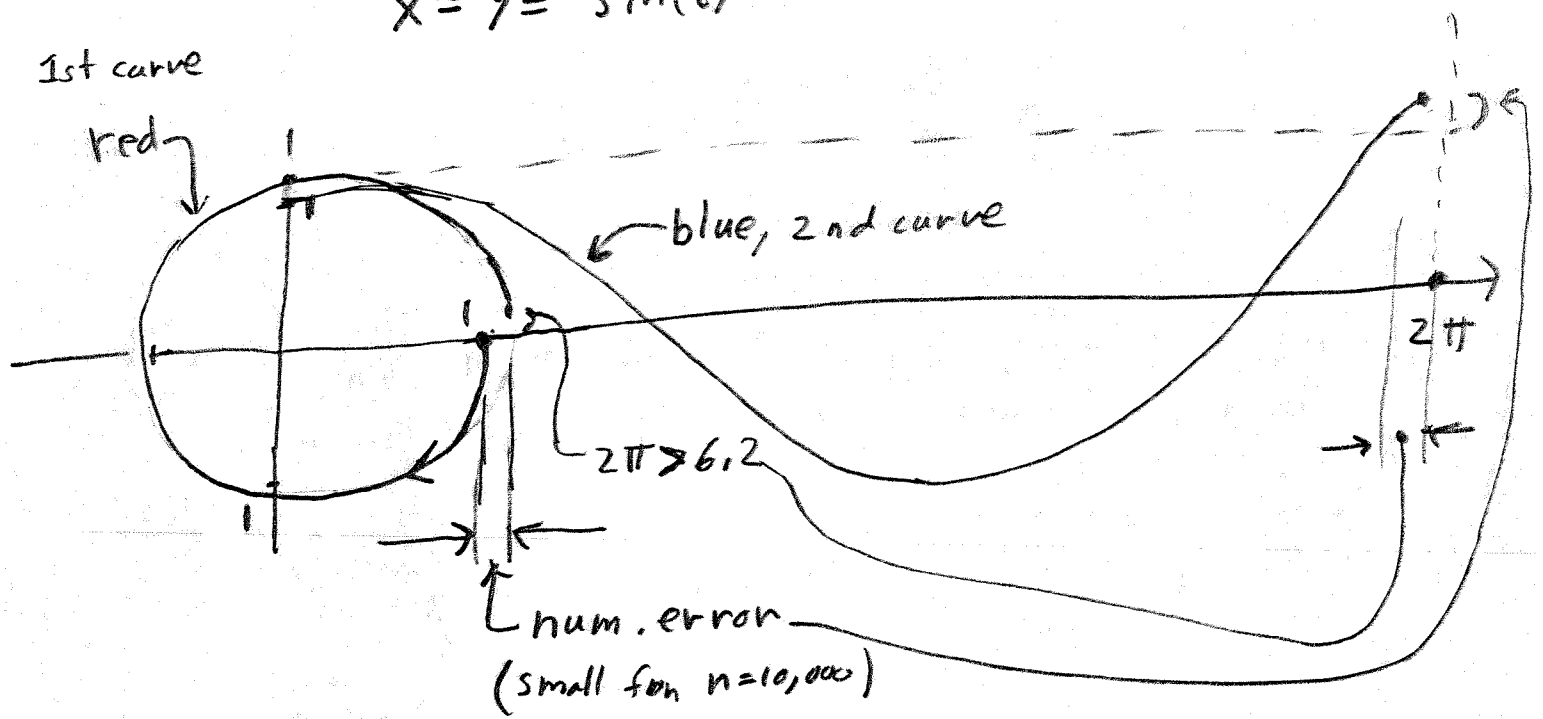 x = y = sin(t)
1st curve
red
1
blue, 2nd curve
1
2π
2π > 6.2
1
num. error
(small for n=10,000)